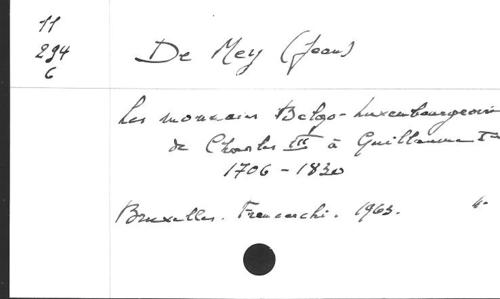 11
294
6
De Mey (Jean)
Les monnaies Belgo-Luxembourgeoises
de Charles III à Guillaume Ier
1706 - 1830
Bruxelles. Franceschi. 1965. 4°